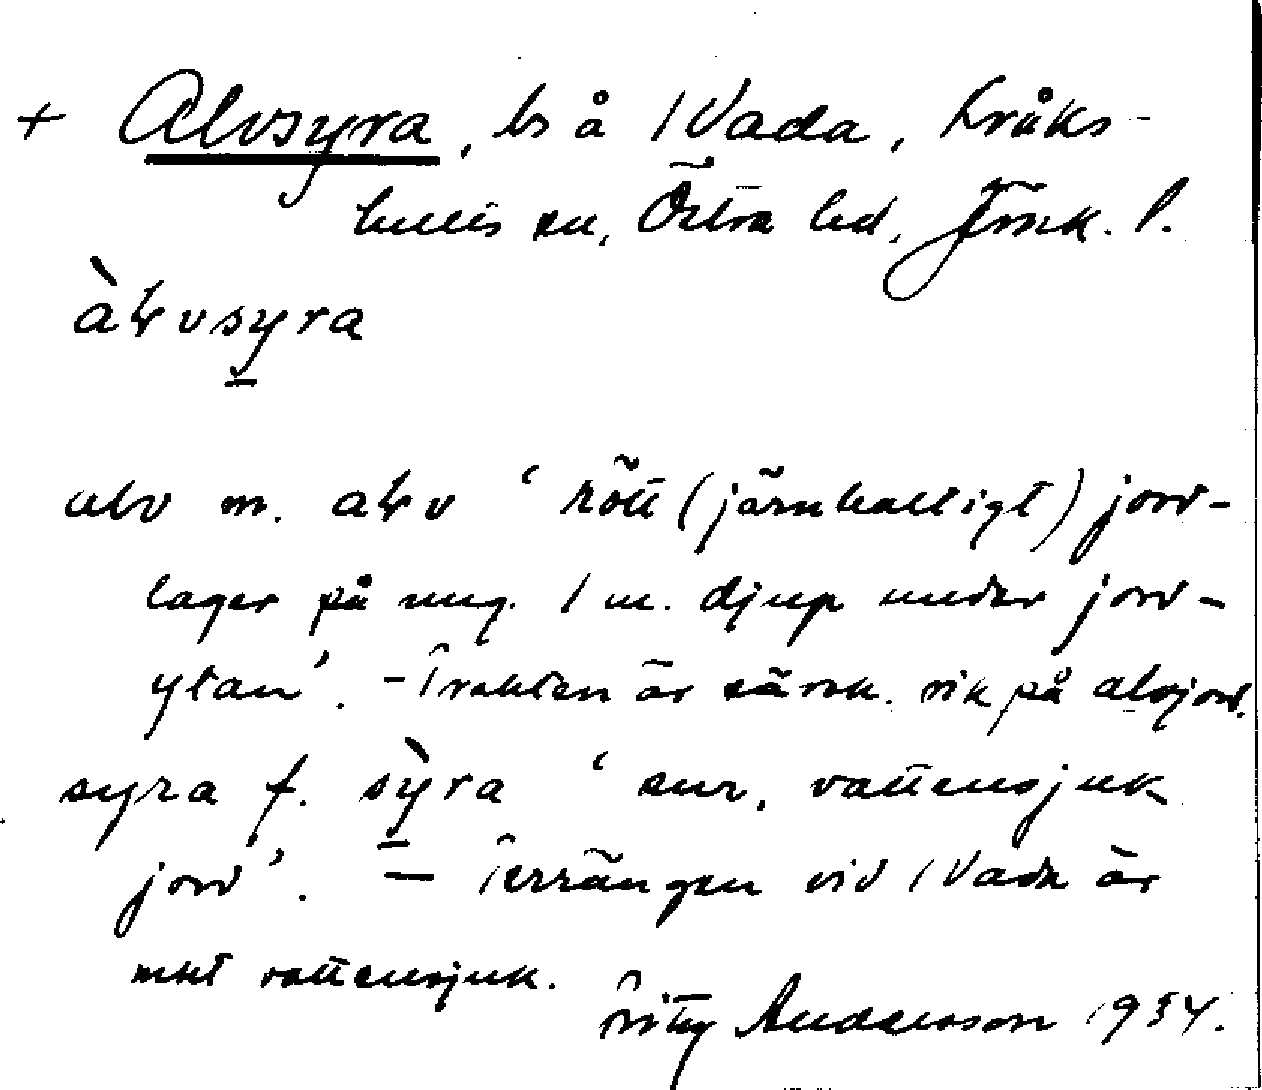 + Alvsyra, ls å 1 Vada, Kråks-
hults sn, Östra hd, Jönk. l.
àḷvsy̲ra
alv m. aḷv ‘rött (järnhaltigt) jord-
lager på ung. 1 m. djup under jord-
ytan’. - Trakten är särsk. rik på alvjord.
syra f. sỳ̲ra ‘sur, vattensjuk
jord’. — Terrängen vid 1 Vada är
mkt vattensjuk.
Andersson 1934.